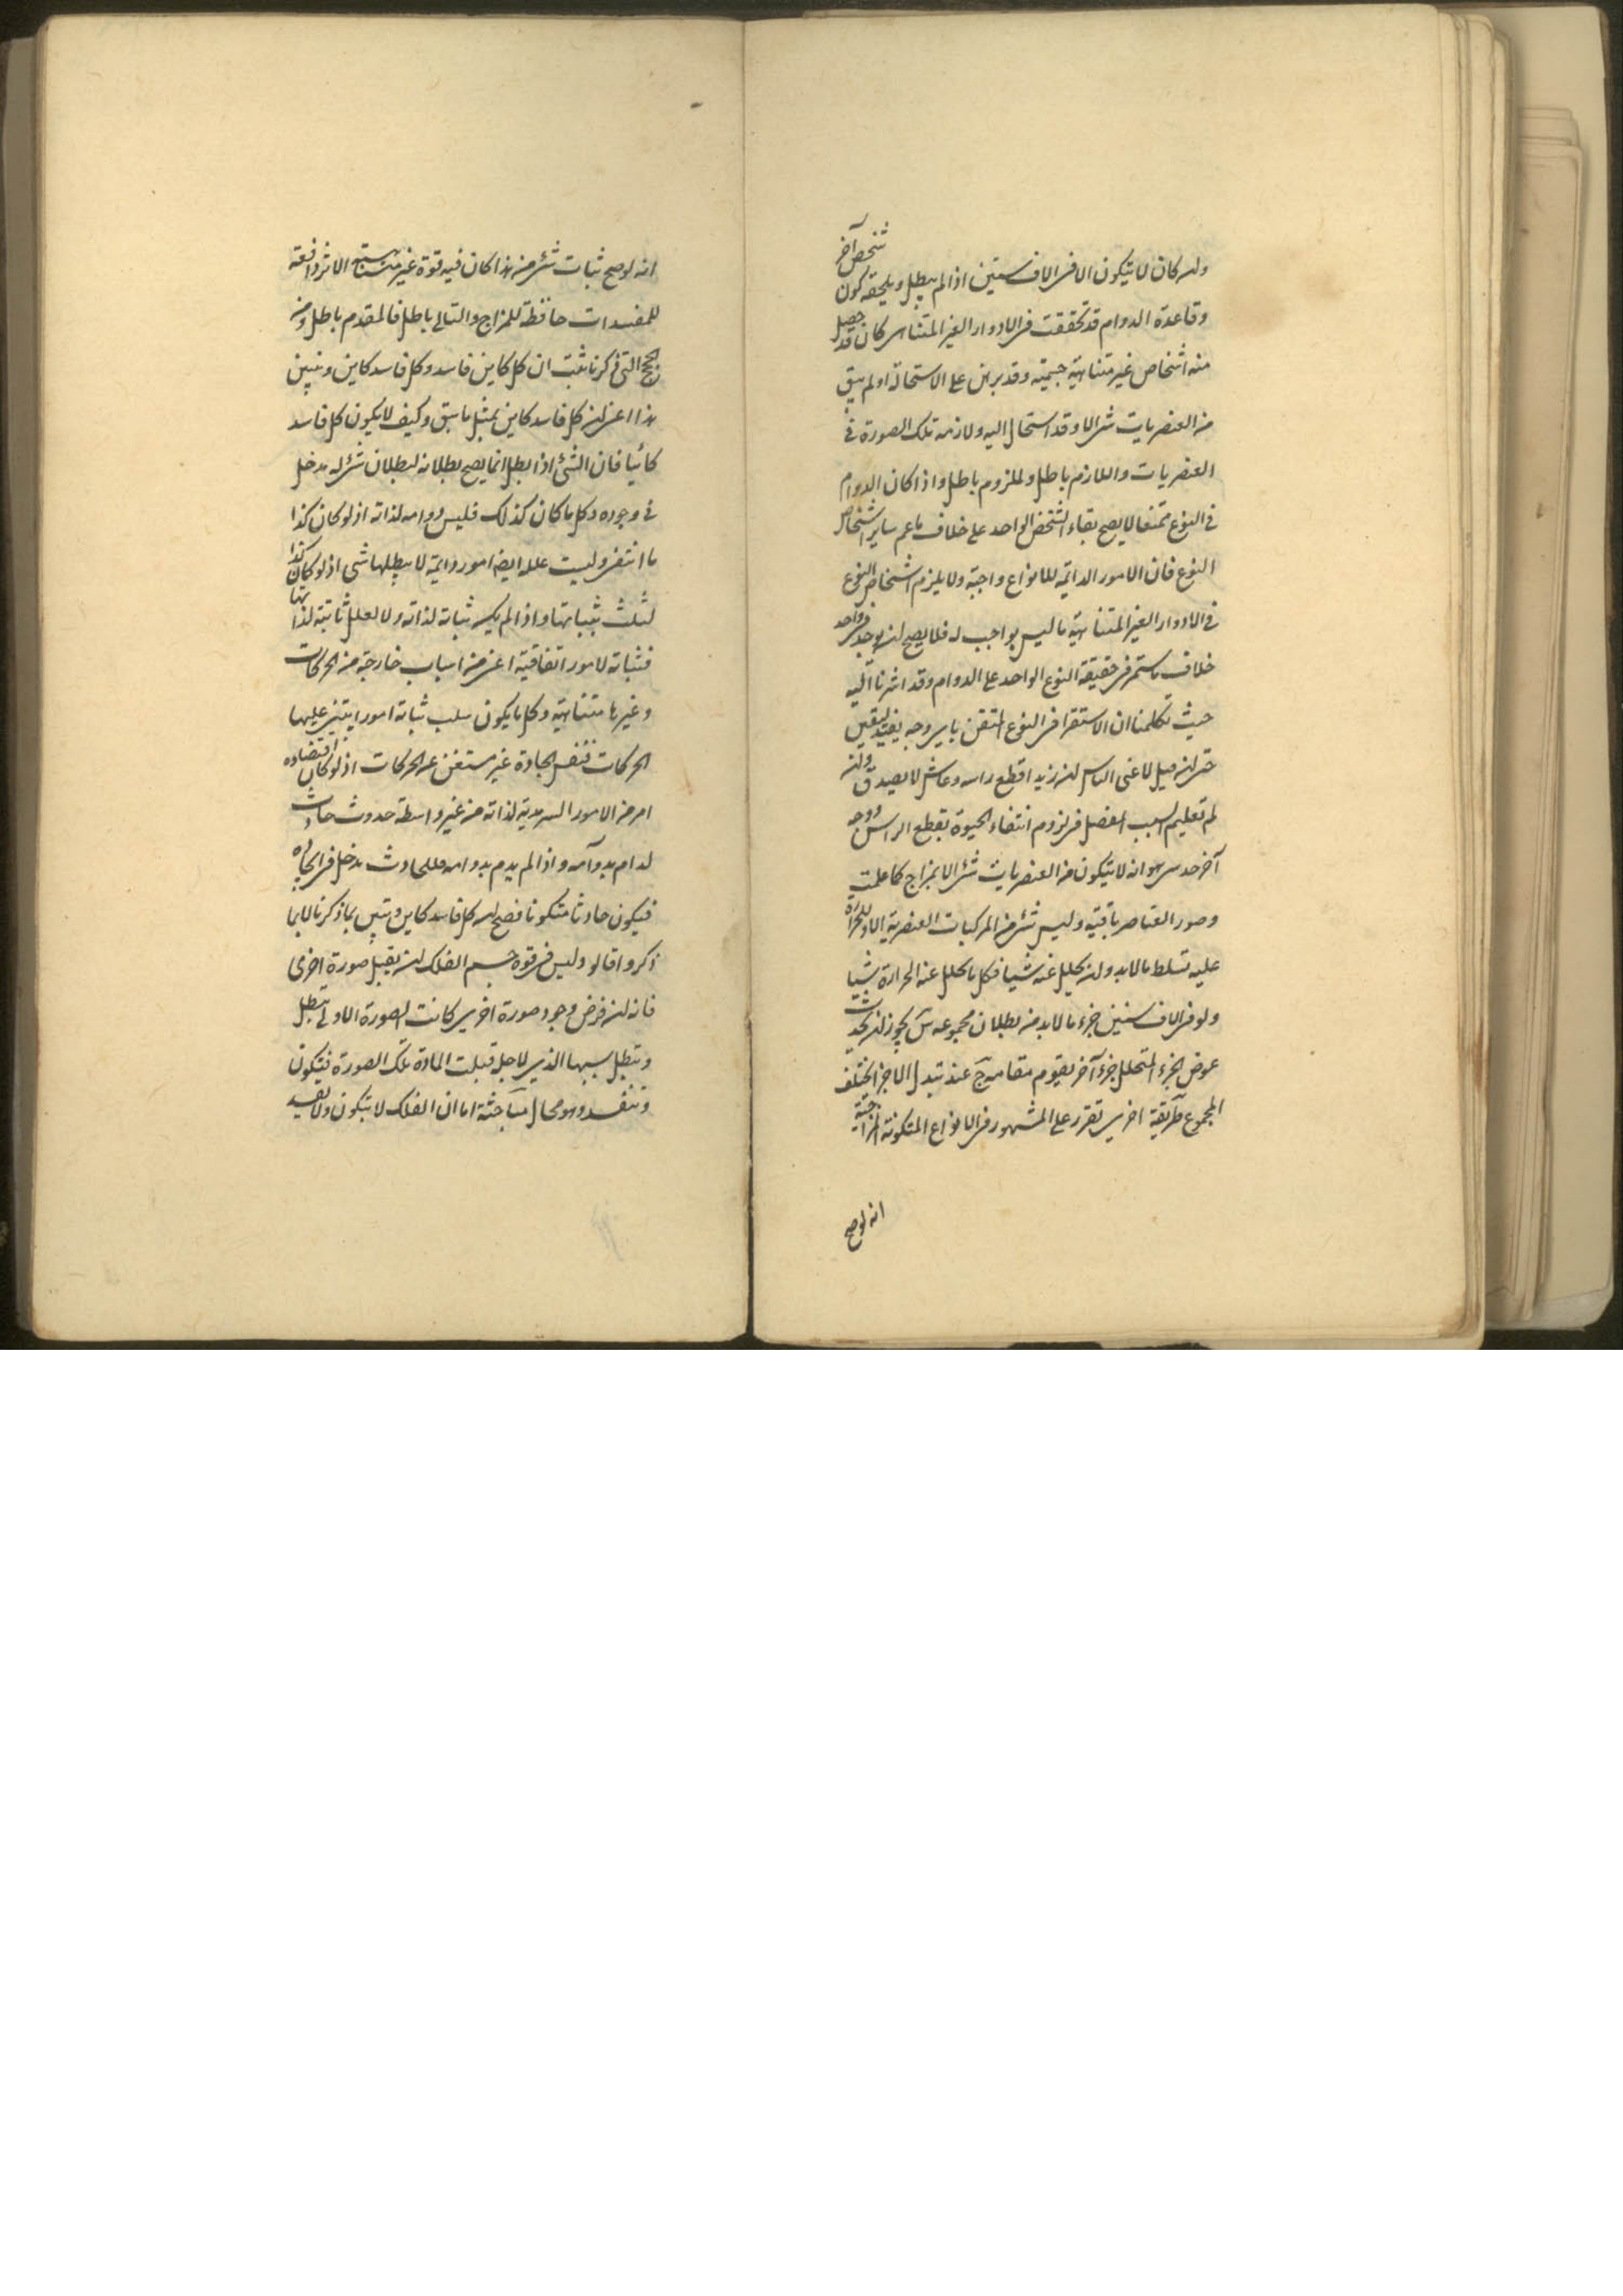 وان كان لا يتكون الا فى الاف سنين اذا لم يبطل ويلحقه كون شخص آخر
وقاعدة الدوام قد تحققت فى الادوار الغير المتناهى كان قد حصل
منه اشخاص غير متناهية جسمية وقد برهن على الاستحالة او لم يبق
من العنصريات شى الا وقد استحال اليه ولازمه تلك الصورة فى
العنصريات واللازم باطل ولملزوم باطل واذا كان الدوام
فى النوع ممتنعا لا يصح بقاء الشخص الواحد على خلاف ما عم ساير اشخاص
النوع فان الامور الدائمة للانواع واجبة ولا يلزم اشخاص النوع
فى الادوار الغير المتناهية ما ليس بواجب له فلا يصح ان يوجد فى واحد
خلاف ما ستمر فى حقيقة النوع الواحد على الدوام وقد اشرنا اليه
حيث تكلمنا ان الاستقرا فى النوع المتفق باى وجه يفيد اليقين
حتى ان قيل لاغنى الناس ان زيد اقطع راسه وعاش لا يصدق وان
لم تعليم السبب المفصل فى لزوم انتفاء الحيوة بقطع الراس ووجه
آخر حدسى هو انه لا يتكون من العنصريات شى الا بمزاج كما علمت
وصور العناصر باقية وليس شى من المركبات العنصرية الا وللحرارة
عليه تسلط ما لابد وان يحلل عنه شيا فكل ما يحلل عنه الحرارة شيا
ولو فى الاف سنين جزء ما لابد من بطلان مجموعه س يجوز ان يحدث
عوض الجزء المتحلل جزء آخر يقوم مقامه ج عند تبدل الاجزا يختلف
المجموع طريقة اخرى تقرر على المشهور فى الانواع المتكونة المزاجية
انه لوصح
انه لوصح ثبات شى من هذا كان فيه قوة غير متناهية الاثر دافعة
للمفسدات حافظة للمزاج والتالى باطل فالمقدم باطل ومن
الحجج التى ذكرنا ثبت ان كل كاين فاسد وكل فاسد كاين ونبين
هذا اعنى ان كل فاسد كاين بمثل ما سبق وكيف لا يكون كل فاسد
كائيا فان الشئ اذا بطل انما يصح بطلانه لبطلان شى له مدخل
فى وجوده وكل ما كان كذلك فليس دوامه لذاته اذ لو كان كذا
ما انتفى وليست علله ايضا امور دائمة لا يبطلها شى اذ لو كان كذا
لثبت بثباتها واذا لم يكن ثباته لذاته ولا لعلل ثابتة لذاتها
فثباته لامور اتفاقية اعنى من اسباب خارجة من الحركات
وغيرها متناهية وكل ما يكون سبب ثباته امور ايبتنى عليها
الحركات فنفس ايجاده غير مستغن عن الحركات اذ لو كان اقتضاوه
امر من الامور السرمدية لذاته من غير واسطة حدوث حادث
لدام بدوامه واذا لم يدم بدوامه فللحادث مدخل فى ايجاده
فيكون حادثا متكونا فصح انه كل فاسد كاين وتبين بما ذكرنا لا بما
ذكروا قالو وليس فى قوة جسم الفلك ان يقبل صورة اخرى
فانه ان فرض وجود صورة اخرى كانت الصورة الاولى تبطل
وتبطل سببها الذى لاجله قبلت المادة تلك الصورة فيتكون
وتنفسد وهو محال مباحثة اما ان الفلك لا يتكون ولا يفسد